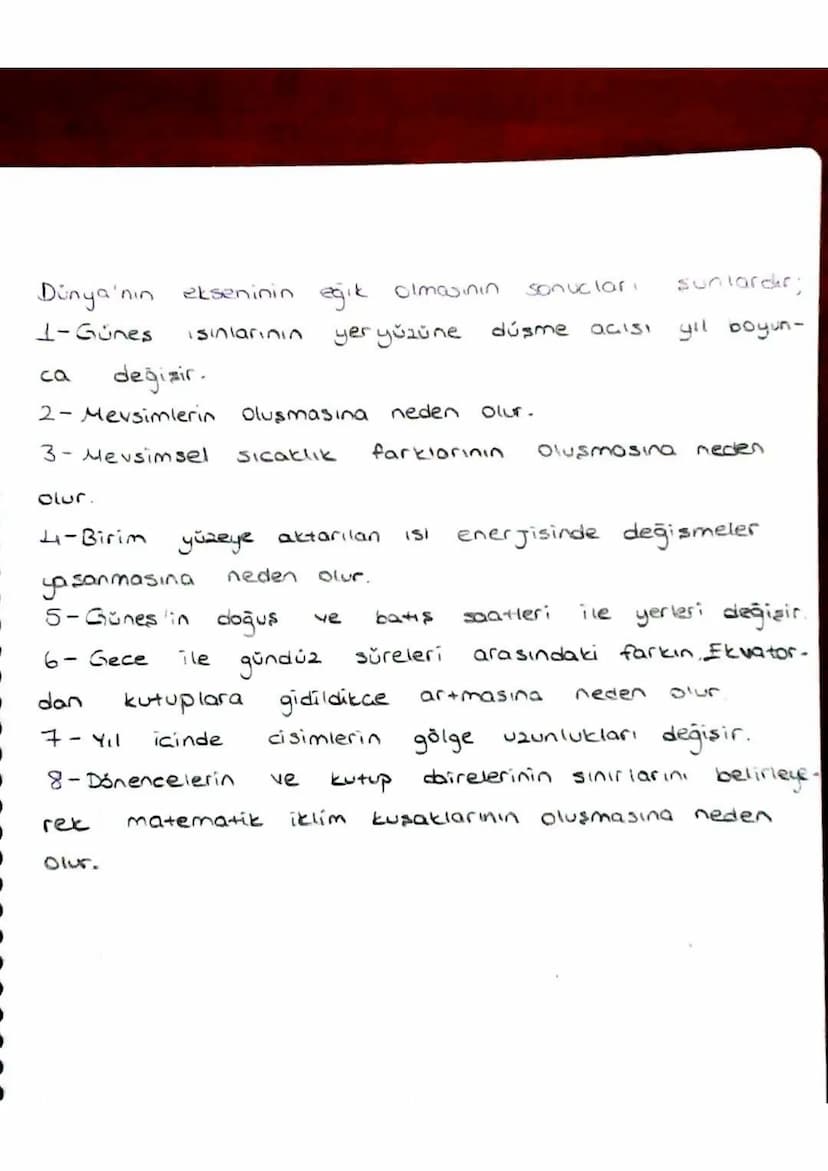 Dünya'nın ekseninin eğik olmasının sonucları sunlardır;
1-Günes ısınlarının yeryüzüne düşme acısı yıl boyun-
ca değişir.
2- Mevsimlerin oluşmasına neden olur.
3- Mevsimsel sıcaklık farklarının oluşmasına neden
olur.
4-Birim yüzeye aktarılan ısı enerjisinde değişmeler
yasanmasına neden olur.
5-Güneş'in doğuş ve batış saatleri ile yerleri değişir.
6- Gece ile gündüz süreleri arasındaki farkın, Ekvator-
dan kutuplara gidildikce artmasına neden olur
7- Yıl icinde cisimlerin gölge uzunlukları değişir.
8-Dönencelerin ve kutup dairelerinin sınırlarını belirleye-
rek matematik iklim kuşaklarının oluşmasına neden
olur.